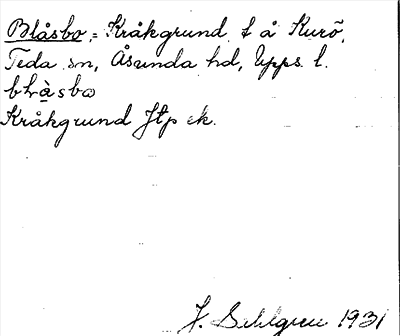 Blåsbo, = Kråkgrund, t å Kurö,
Teda sn, Åsunda hd, Upps. l.
Kråkgrund Jtp ek.
J. Sahlgren 1931